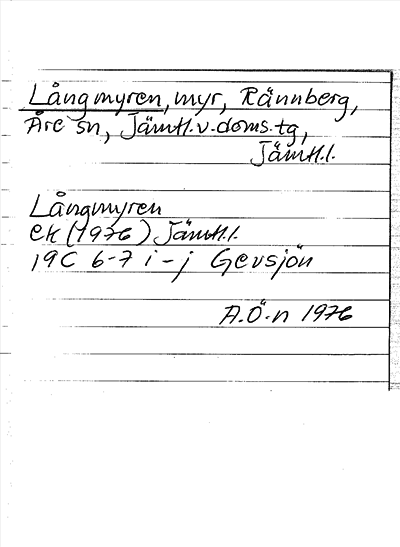 Långmyren, myr, Rännberg,
Åre sn, Jämtl.v.doms.tg,
Jämtl.l.
Långmyren
ek (1976) Jämtl.l.
19C 6-7 i-j Gevsjön
A.Ö.n 1976